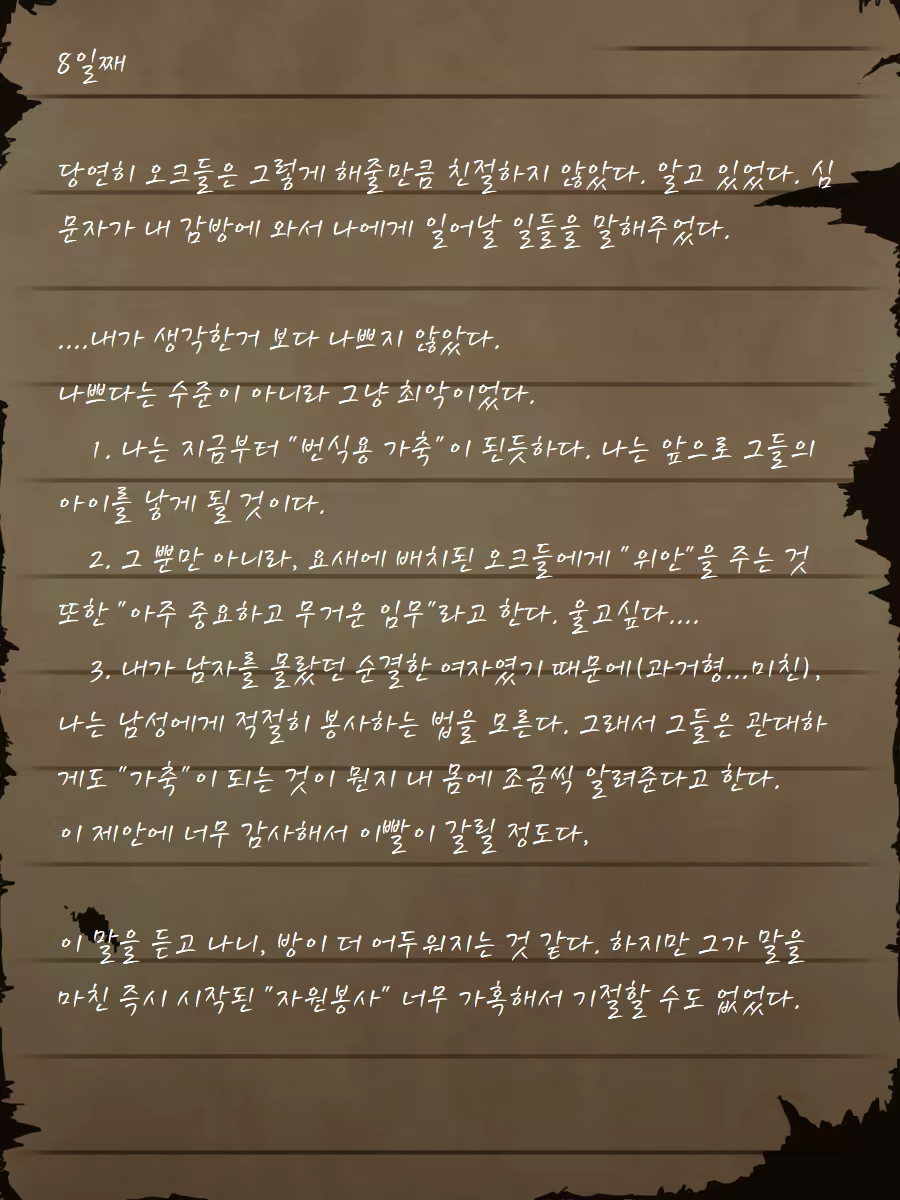 8일째
당연히 오크들은 그렇게 해줄만큼 친절하지 않았다. 알고 있었다. 심
문자가 내 감방에 와서 나에게 일어날 일들을 말해주었다.
....내가 생각한거 보다 나쁘지 않았다.
나쁘다는 수준이 아니라 그냥 최악이었다.
1. 나는 지금부터 "번식용 가축"이 된듯하다. 나는 앞으로 그들의
아이를 낳게 될 것이다.
2. 그 뿐만 아니라, 요새에 배치된 오크들에게 "위안"을 주는 것
또한 "아주 중요하고 무거운 임무"라고 한다. 울고싶다....
3. 내가 남자를 몰랐던 순결한 여자였기 때문에(과거형...미친),
나는 남성에게 적절히 봉사하는 법을 모른다. 그래서 그들은 관대하
게도 "가축"이 되는 것이 뭔지 내 몸에 조금씩 알려준다고 한다.
이 제안에 너무 감사해서 이빨이 갈릴 정도다,
이 말을 듣고 나니, 방이 더 어두워지는 것 같다. 하지만 그가 말을
마친 즉시 시작된 "자원봉사" 너무 가혹해서 기절할 수도 없었다.